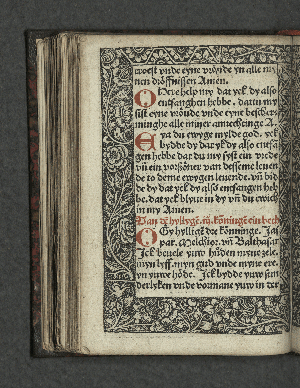 troest vnde eyne vröude yn alle my
nen dröffnissen Amen.
O Here help my dat yck dy also
entfanghen hebbe. dattu my
sist eyne vroude vnde eyne bescher
minghe alle myner anvechtinge A.
Eya du ewyge mylde god. yck
bydde dy dat yk dy also entfa
gen hebbe dat du my syst ein vrede
vn̄ ein vorsöner van desseme leuen
de to deme ewygen leuende. vn̄ bid
de dy dat yck dy also entfangen heb
be. dat yck blyue in dy vn̄ du ewich
in my Amen.
Van dē hyllygē. iij. kōninge ein beth
O Gy hylligē dre kōninge. Jas
par. Melchior. vn̄ Balthasar
Jck beuele yuw hüden myne zele.
myn lyff. myn gud vnde myne ere.
yn yuwe höde. Jck bydde yuw sun
derlyken vnde vormane yuw in der